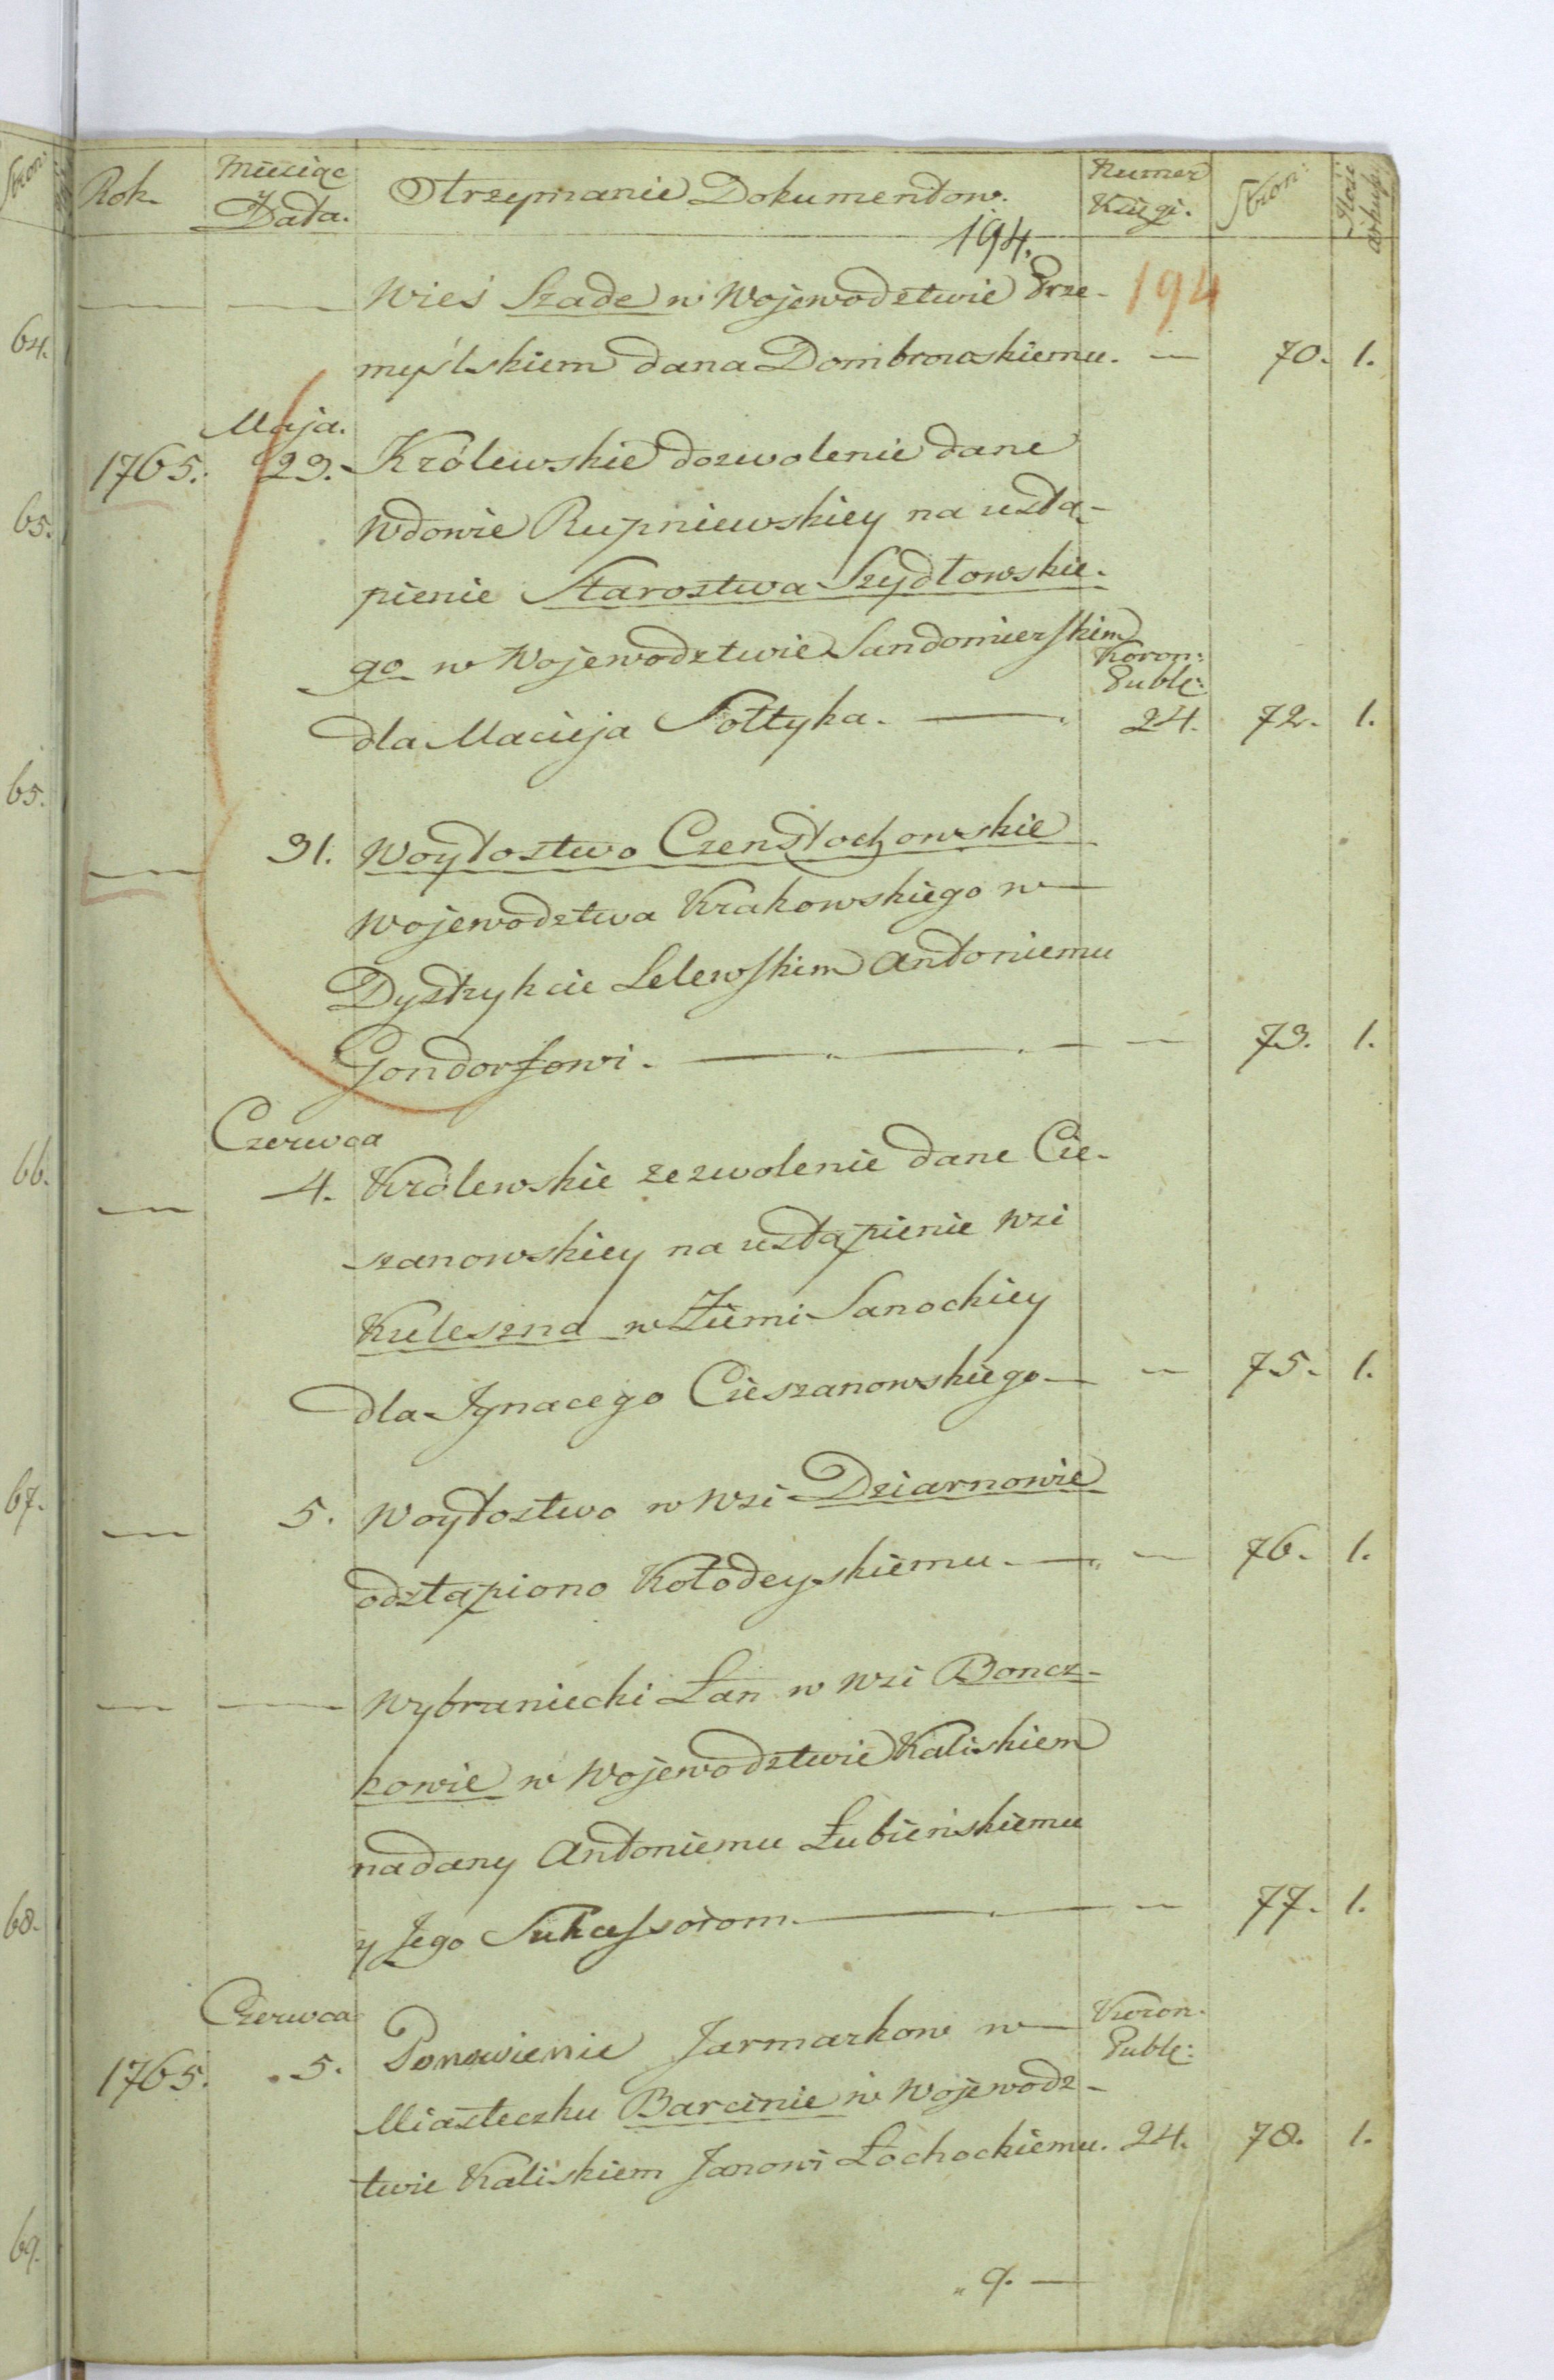 Stron:
Rok.
Miesiąc
y
Data.
Otrzymanie Dokumentow.
Numer
Księgi.
Stron:
Ilość
arkusz:
194.
194
— — Wieś Szade w Wojewodztwie Prze-
myślskiem dana Dombrowskiemu. — 70. 1.
Maja.
1765. 29. Królewskie dozwolenie dane
Wdowie Rupniewskiey na ustą-
pienie Starostwa Szydłowskie-
go w Wojewodztwie Sandomierskim
Koron:
Publ:
dla Macieja Sołtyka. — 24. 72. 1.
— 31. Woytostwo Czenstochowskie
Wojewodztwa Krakowskiego w
Dystrykcie Lelewskim Antoniemu
Gondorfowi. — — 73. 1.
Czerwca
— 4. Królewskie zezwolenie dane Cie-
szanowskiey na ustąpienie wsi
Kuleszna w Ziemi Sanockiey
dla Ignacego Cieszanowskiego — — 75. 1.
— 5. Woytostwo w wsi Dziarnowie
odstąpiono Kołodeyskiemu. — — 76. 1.
— — Wybraniecki Łan w wsi Boncz-
kowie w Wojewodztwie Kaliskiem
nadany Antoniemu Łubieńskiemu
y Jego Sukcessorom. — — 77. 1.
Czerwca
1765. 5. Ponowienie Jarmarkow w
Koron.
Publ:
Miasteczku Barcinie w Wojewodz-
twie Kaliskiem Janowi Łochockiemu. 24. 78. 1.
„ 9. —
64.
65.
65.
66.
67.
68.
69.